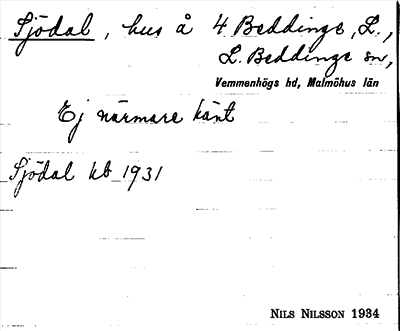 Sjödal, hus å 4 Beddinge, L.,
L. Beddinge sn,
Vemmenhögs hd, Malmöhus län
Ej närmare känt
Sjödal kb 1931
NILS NILSSON 1934